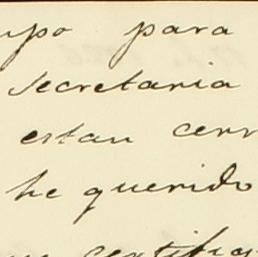 upo para
secretaria
estan cerr
he querido
certifi